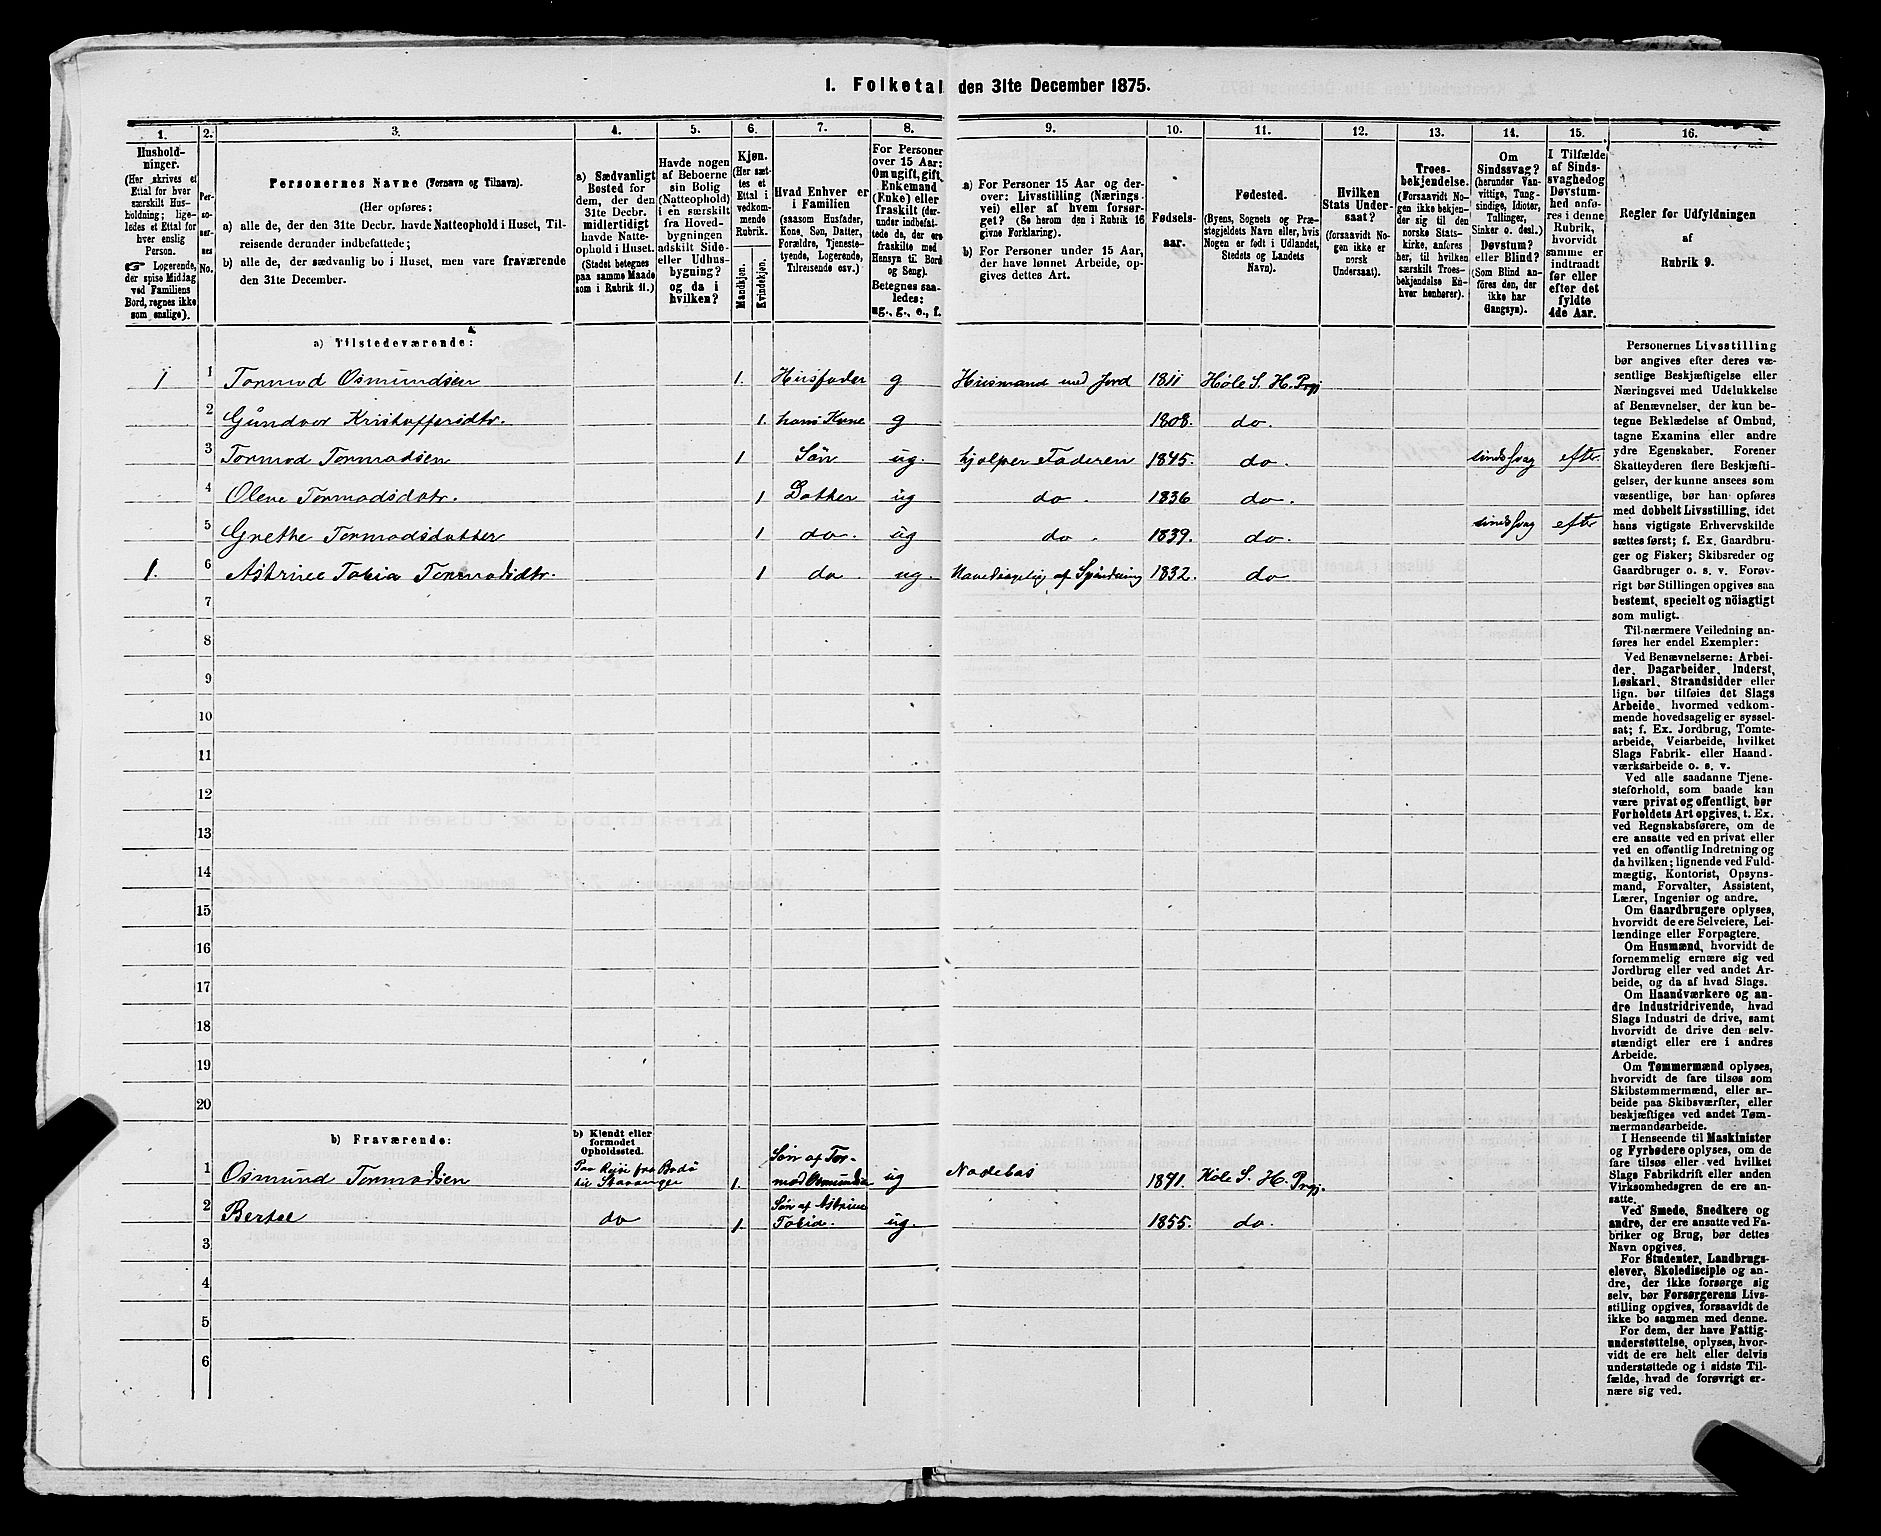 1. Folketal den 31te December 1875.
1. 2. 3. 4. 5. 6. 7. 8. 9. 10. 11. 12. 13. 14. 15. 16.
Hushold-
ninger.
(Her skrives et
Ettal for hver
særskilt Hus-
holdning; lige-
ledes et Ettal for
hver enslig
Person.
☞ Logerende,
der spise Middag
ved Familiens
Bord, regnes ikke
som enslige).
Per-
so-
ner-
nes
No.
Personernes Navne (Fornavn og Tilnavn).
(Her opføres:
a) alle de, der den 31te Decbr. havde Natteophold i Huset, Til-
reisende derunder indbefattede;
b) alle de, der sædvanlig bo i Huset, men vare fraværende
den 31te December.
a) Sædvanligt
Bosted for
dem, der den
31te Decbr.
midlertidigt
havde Natte-
ophold i Huset.
(Stedet betegnes
paa samme Maade
som i Rubrik 11.)
Havde nogen
af Beboerne
sin Bolig
(Natteophold)
i en særskilt
fra Hoved-
bygningen
adskilt Side-
eller Udhus-
bygning?
og da i
hvilken?
Kjøn.
(Her sæt-
tes et
Ettal i
vedkom-
mende
Rubrik.
Mandkjøn.
Kvindekjøn.
Hvad Enhver er
i Familien
(saasom Husfader,
Kone, Søn, Datter,
Forældre, Tjeneste-
tyende, Logerende,
Tilreisende osv.)
For Personer
over 15 Aar:
Om ugift, gift,
Enkemand
(Enke) eller
fraskilt (der-
under indbefat-
tede de, der ere
fraskilte med
Hensyn til Bord
og Seng).
Betegnes saa-
ledes:
ug., g., e., f.
a) For Personer 15 Aar og der-
over: Livsstilling (Nærings-
vei) eller af hvem forsør-
get? (Se herom den i Rubrik 16
givne Forklaring).
b) For Personer under 15 Aar,
der have lønnet Arbeide, op-
gives dettes Art.
Fødsels-
aar.
Fødested.
(Byens, Sognets og Præ-
stegjeldets Navn eller, hvis
Nogen er født i Udlandet,
Stedets og Landets
Navn).
Hvilken
Stats Under-
saat?
(forsaavidt No-
gen ikke er
norsk
Undersaat).
Troes-
bekjendelse.
(Forsaavidt No-
gen ikke bekjen-
der sig til den
norske Stats-
kirke, anføres
her, til hvilken
særskilt Troes-
bekjendelse En-
hver henhører).
Om
Sindssvag?
(herunder Van-
vittige, Tung-
sindige, Idioter,
Tullinger,
Sinker o. desl.)
Døvstum?
eller Blind?
(Som Blind an-
føres den, der
ikke har
Gangsyn).
I Tilfælde
af Sinds-
svaghed og
Døvstum-
hed anfø-
res i denne
Rubrik,
hvorvidt
samme er
indtraadt
før eller
efter det
fyldte
4de Aar.
Regler for Udfyldningen
af
Rubrik 9.
a) Tilstedeværende:
1 1 Tormod Osmundsen 1. Husfader g Husmand med Jord 1811 Høle S. H. Prgj
2 Gundvor Kristoffersdtr. 1. hans Kone g 1808. do.
3 Tormod Tormodsen 1 Søn ug. hjælper Faderen 1845. do. sindssvag efter
4 Olene Tormodsdatr. 1 Datter ug do. 1836 do.
5 Grethe Tormodsdatter 1 do. ug do. 1839. do. sindssvag efter
1. 6 Astrine Tobia Tormodsdtr. 1 do ug. Hovedsagelig af Spinding 1832. do
7
8
9
10
11
12
13
14
15
16
17
18
19
20
b) Fraværende:
b) Kjendt eller
formodet
Opholdssted.
1 Osmund Tormodsen Paa Reise fra Bodø
til Stavanger 1. Søn af Tor-
mod Osmundsen ug Nodebas 1841. Høle S. H. Prgj.
2 Bertel do 1. Søn af Astrine
Tobia. ug. 1855. do.
3
4
5
6
Personernes Livsstilling
bør angives efter deres væ-
sentlige Beskjæftigelse eller
Næringsvei med Udelukkelse
af Benævnelser, der kun be-
tegne Beklædelse af Ombud,
tagne Examina eller andre
ydre Egenskaber. Forener
Skatteyderen flere Beskjæfti-
gelser, der kunne ansees som
væsentlige, bør han opføres
med dobbelt Livsstilling, idet
hans vigtigste Erhvervskilde
sættes først; f. Ex. Gaardbru-
ger og Fisker; Skibsreder og
Gaardbruger o. s. v. Forøv-
rigt bør Stillingen opgives saa
bestemt, specielt og nöiagtigt
som muligt.
Til nærmere Veiledning an-
føres her endel Exempler:
Ved Benævnelserne: Arbei-
der, Dagarbeider, Inderst,
Løskarl, Strandsidder eller
lign. bør tilføies det Slags
Arbeide, hvormed vedkom-
mende hovedsagelig er syssel-
sat; f. Ex. Jordbrug, Tomte-
arbeide, Veiarbeide, hvilket
Slags Fabrik- eller Haand-
værksarbeide o. s. v.
Ved alle saadanne Tjene-
steforhold, som baade kan
være privat og offentligt, bør
Forholdets Art opgives, t. Ex.
ved Regnskabsførere, om de
ere ansatte ved en privat eller
ved en offentlig Indretning og
da hvilken; lignende ved Fuld-
mægtig, Kontorist, Opsyns-
mand, Forvalter, Assistent,
Lærer, Ingeniør og andre.
Om Gaardbrugere oplyses,
hvorvidt de ere Selveiere, Lei-
lændinge eller Forpagtere.
Om Husmænd, hvorvidt de
fornemmelig ernære sig ved
Jordbrug eller ved andet Ar-
beide, og da af hvad Slags.
Om Haandværkere og an-
dre Industridrivende, hvad
Slags Industri de drive, samt
hvorvidt de drive den selv-
stændigt eller ere i andres
Arbeide.
Om Tømmermænd oplyses,
hvorvidt de fare tilsøs som
Skibstømmermænd, eller ar-
beide paa Skibsværfter, eller
beskjæftiges ved andet Tøm-
mermandsarbeide.
I Henseende til Maskinister
og Fyrbødere oplyses, om de
fare tilsøs eller ved hvilket
Slags Fabrikdrift eller anden
Virksomhedsgren de ere an-
satte.
Ved Smede, Snedkere og
andre, der ere ansatte ved Fa-
briker og Brug, bør dettes
Navn opgives.
For Studenter, Landbrugs-
elever, Skoledisciple og an-
dre, der ikke forsørge sig
selv, bør Forsørgerens Livs-
stilling opgives, forsaavidt de
ikke bo sammen med denne.
For dem, der have Fattig-
understøttelse, oplyses, hvor-
vidt de ere helt eller delvis
understøttede og i sidste Til-
fælde, hvad de forøvrigt er-
nære sig ved.